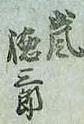 嵐
徳三郎